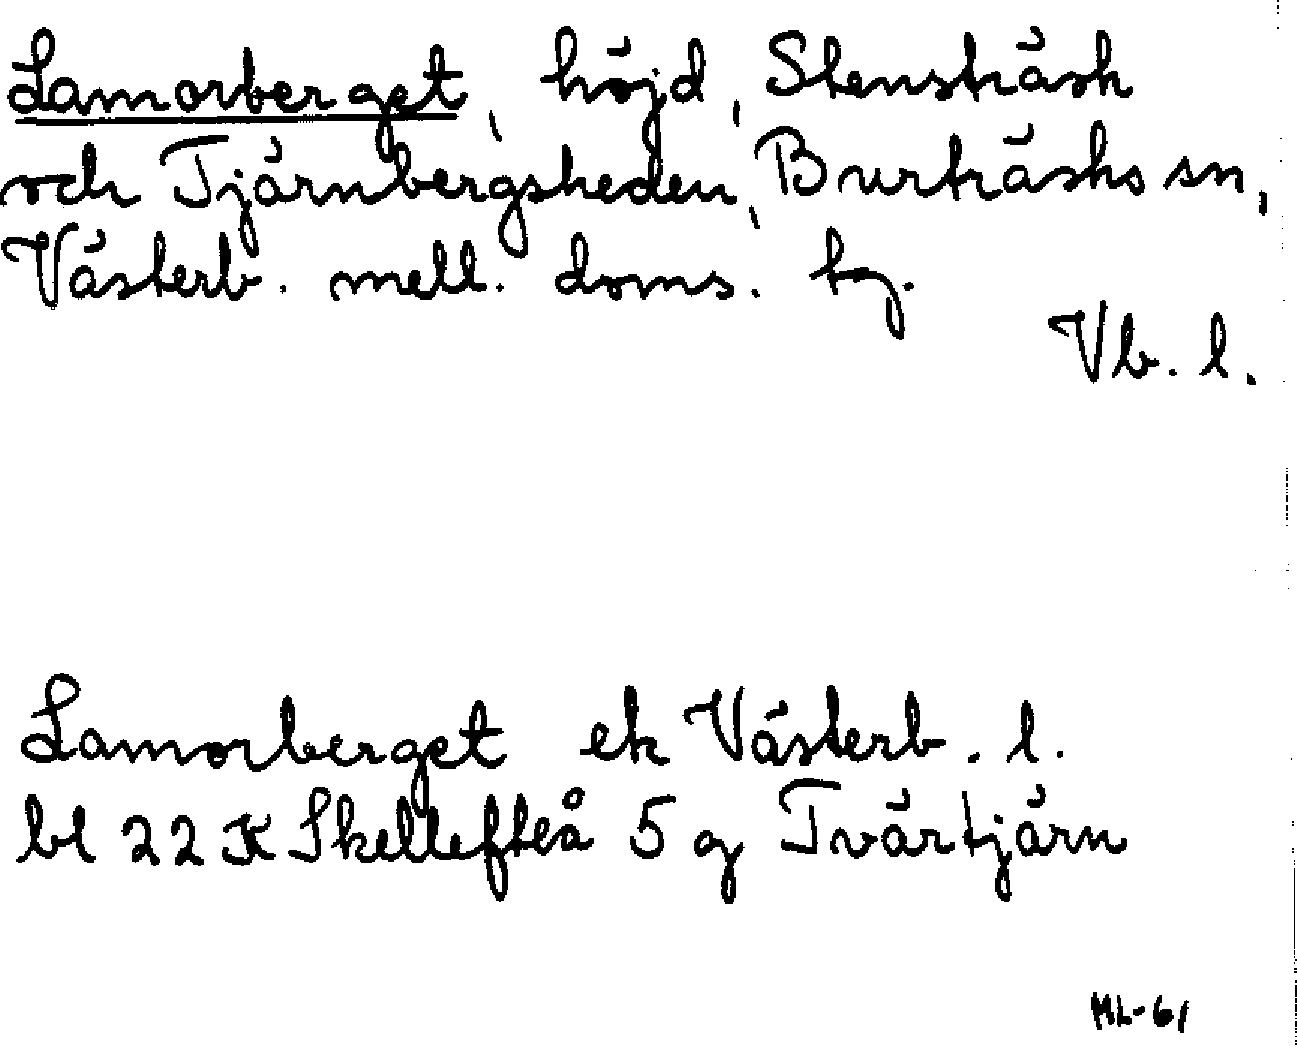 Lamorberget, höjd, Stensträsk
och Tjärnbergsheden, Burträsks sn,
Västerb. mell. doms. tg.
Vb. l.
Lamorberget ek Västerb. l.
bl 22 K Skellefteå 5 g Tvärtjärn
ML-61